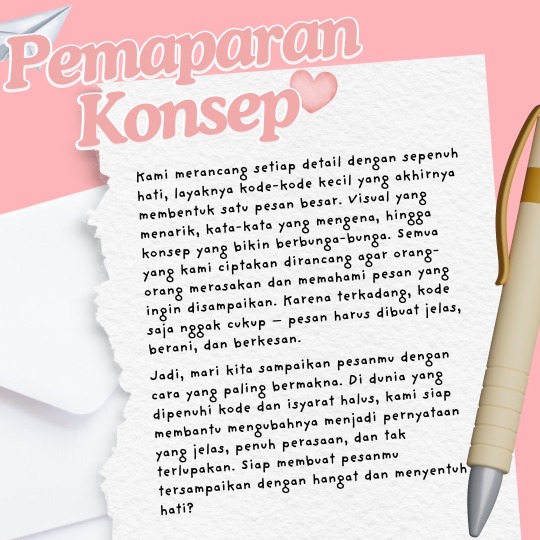 Pemaparan
Konsep
Kami merancang setiap detail dengan sepenuh
hati, layaknya kode-kode kecil yang akhirnya
membentuk satu pesan besar. Visual yang
menarik, kata-kata yang mengena, hingga
konsep yang bikin berbunga-bunga. Semua
yang kami ciptakan dirancang agar orang-
orang merasakan dan memahami pesan yang
ingin disampaikan. Karena terkadang, kode
saja nggak cukup – pesan harus dibuat jelas,
berani, dan berkesan.
Jadi, mari kita sampaikan pesanmu dengan
cara yang paling bermakna. Di dunia yang
dipenuhi kode dan isyarat halus, kami siap
membantu mengubahnya menjadi pernyataan
yang jelas, penuh perasaan, dan tak
terlupakan. Siap membuat pesanmu
tersampaikan dengan hangat dan menyentuh
hati?